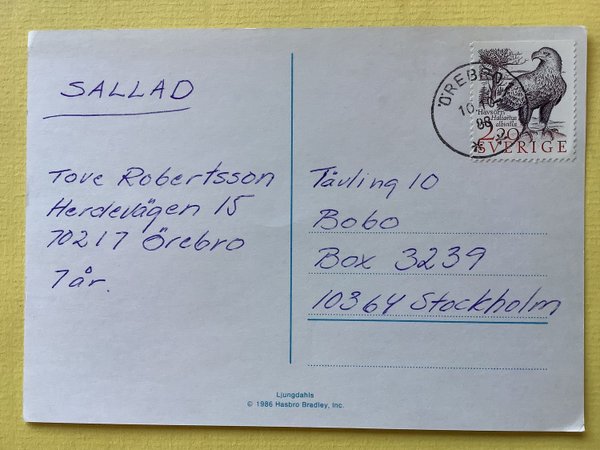 SALLAD
Tove Robertsson
Herdevägen 15
70217 Örebro
7 år.
Tävling 10
Bobo
Box 3239
10364 Stockholm
ÖREBRO
10
88
Havsörn
Haliaetus
albicilla
2.20
SVERIGE
Ljungdahls
© 1986 Hasbro Bradley, Inc.